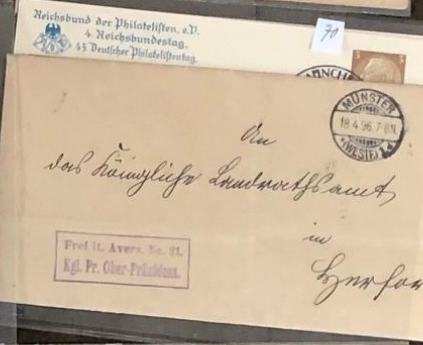 Reichsbund der Philatelisten, e.V.
4. Reichsbundestag.
43 Deutscher Philatelistentag.
70
3
MÜNCHE
MÜNSTER
18.4.96.7-8N.
*(WESTF) 1.*
An
das Königliche Landrathsamt
in
Herfor
Frei lt. Avers. No. 21.
Kgl. Pr. Ober-Präsident.